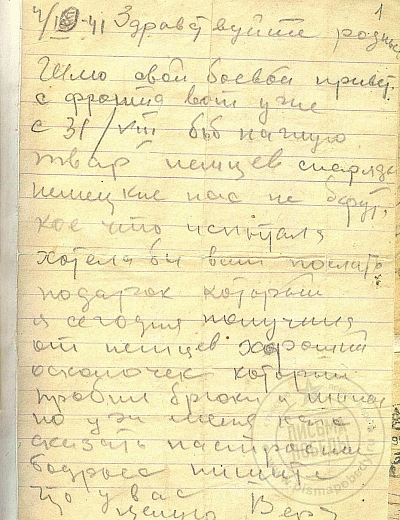 4/IX-41 Здравствуйте родные 1
Шлю свой боевой привет
с фронта вот уже
с 31/VIII бью
немцев снаряды
немецкие нас не берут,
кое что испытала
хотела бы вам послать
подарок который
я сегодня получила
от немцев хороший
осколочек который
пробил брюки и
но
сказать настроение
бодрое пишите
что у вас
целую Вера
ПИСЬМА ПОБЕДЫ
www.pismapobedy